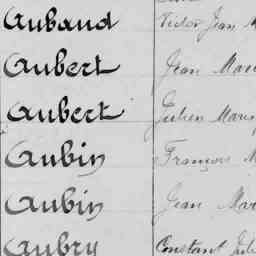 Aubaud Victor Jean
Aubert Jean Marie
Aubert Julien Marie
Aubin François M
Aubin Jean Mar
Aubry Constant Juli